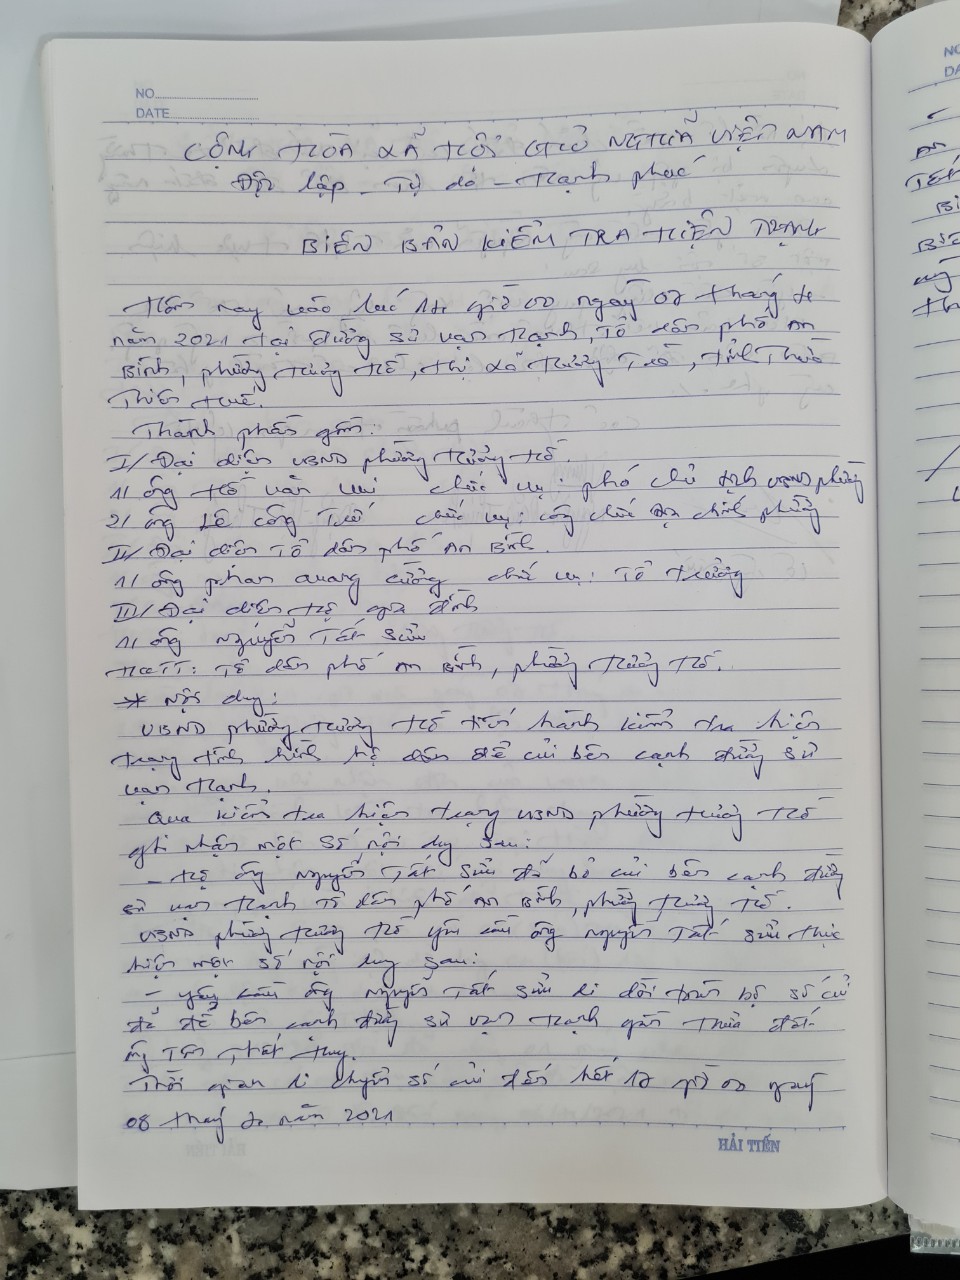 NO
DATE
CỘNG HÒA XÃ HỘI CHỦ NGHĨA VIỆT NAM
Độc lập - Tự do - Hạnh phúc
BIÊN BẢN KIỂM TRA HIỆN TRẠNG
Hôm nay vào lúc giờ 00 ngày 07 tháng
năm 2021 tại đường Sư Vạn Hạnh, Tổ dân phố An
Bình, phường Hương Hồ, thị xã Hương Trà, tỉnh Thừa
Thiên Huế.
Thành phần gồm:
I/ Đại diện UBND phường Hương Hồ.
1/ ông Hồ Văn chức vụ: phó chủ tịch UBND phường
2/ ông Lê Công chức vụ: công chức địa chính phường
II/ Đại diện Tổ dân phố An Bình.
1/ ông Phan Quang Cường chức vụ: Tổ trưởng
III/ Đại diện hộ gia đình
1/ ông Nguyễn Tất Sửu
HKTT: Tổ dân phố An Bình, phường Hương Hồ.
* Nội dung:
UBND phường Hương Hồ tiến hành kiểm tra hiện
trạng tình hình hộ dân để củi bên cạnh đường Sư
Vạn Hạnh.
Qua kiểm tra hiện trạng UBND phường Hương Hồ
ghi nhận một số nội dung sau:
- Hộ ông Nguyễn Tất Sửu đã bỏ củi bên cạnh đường
Sư Vạn Hạnh Tổ dân phố An Bình, phường Hương Hồ.
UBND phường Hương Hồ yêu cầu ông Nguyễn Tất Sửu thực
hiện một số nội dung sau:
- Yêu cầu ông Nguyễn Tất Sửu di dời toàn bộ số củi
đã để bên cạnh đường Sư Vạn Hạnh gần thửa đất
ông Tôn Thất
Thời gian di chuyển số củi đến hết 17 giờ 00 ngày
08 tháng năm 2021
HẢI TIẾN